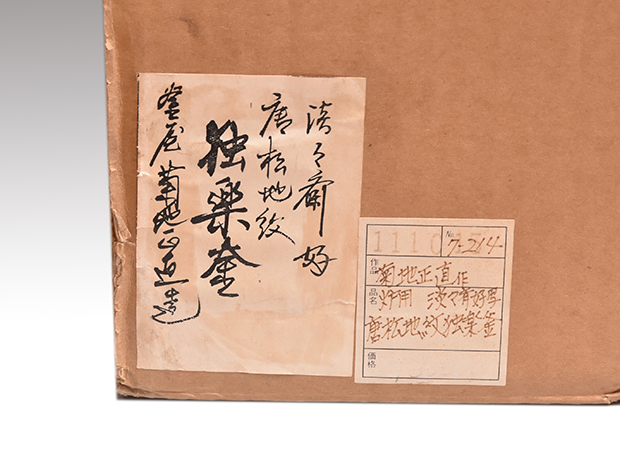 淡々斎好
唐松地紋
独楽釜
釜屋菊地正直造
1110
No. 7-214
作品
菊地正直作
品名
炉用 淡々斎好写
唐松地紋独楽釜
価格